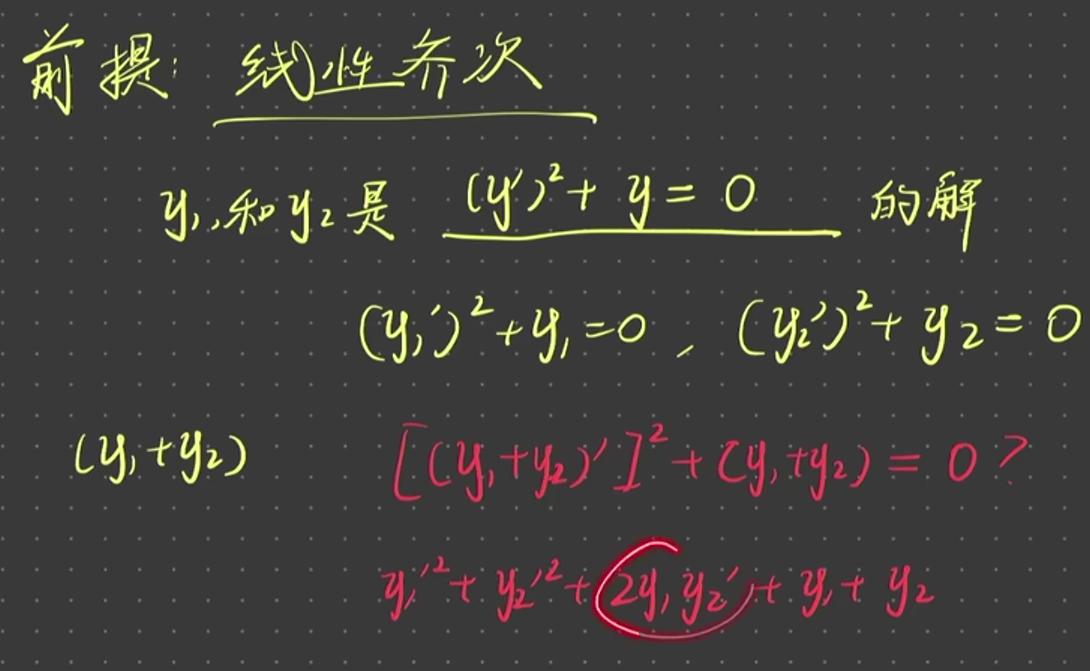 前提: 线性齐次
y₁, 和 y₂ 是 (y')² + y = 0 的解
(y₁')² + y₁ = 0 , (y₂')² + y₂ = 0
(y₁+y₂) [(y₁+y₂)']² + (y₁+y₂) = 0 ?
y₁'² + y₂'² + 2y₁y₂' + y₁ + y₂